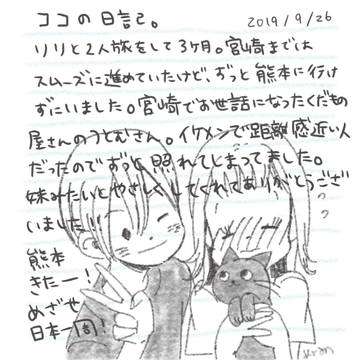 ココの日記。 2019/9/26
リリと2人旅をして3ヶ月。宮崎までは
スムーズに進めていたけど、ずっと熊本に行け
ずにいました。宮崎でお世話になったくだもの
屋さんのうとむさん。イケメンで距離感近い人
だったのでずっと照れてしまってました。
妹みたいとやさしくしてくれてありがとうござ
いました!
熊本
きたー!
めざせ
日本一周!